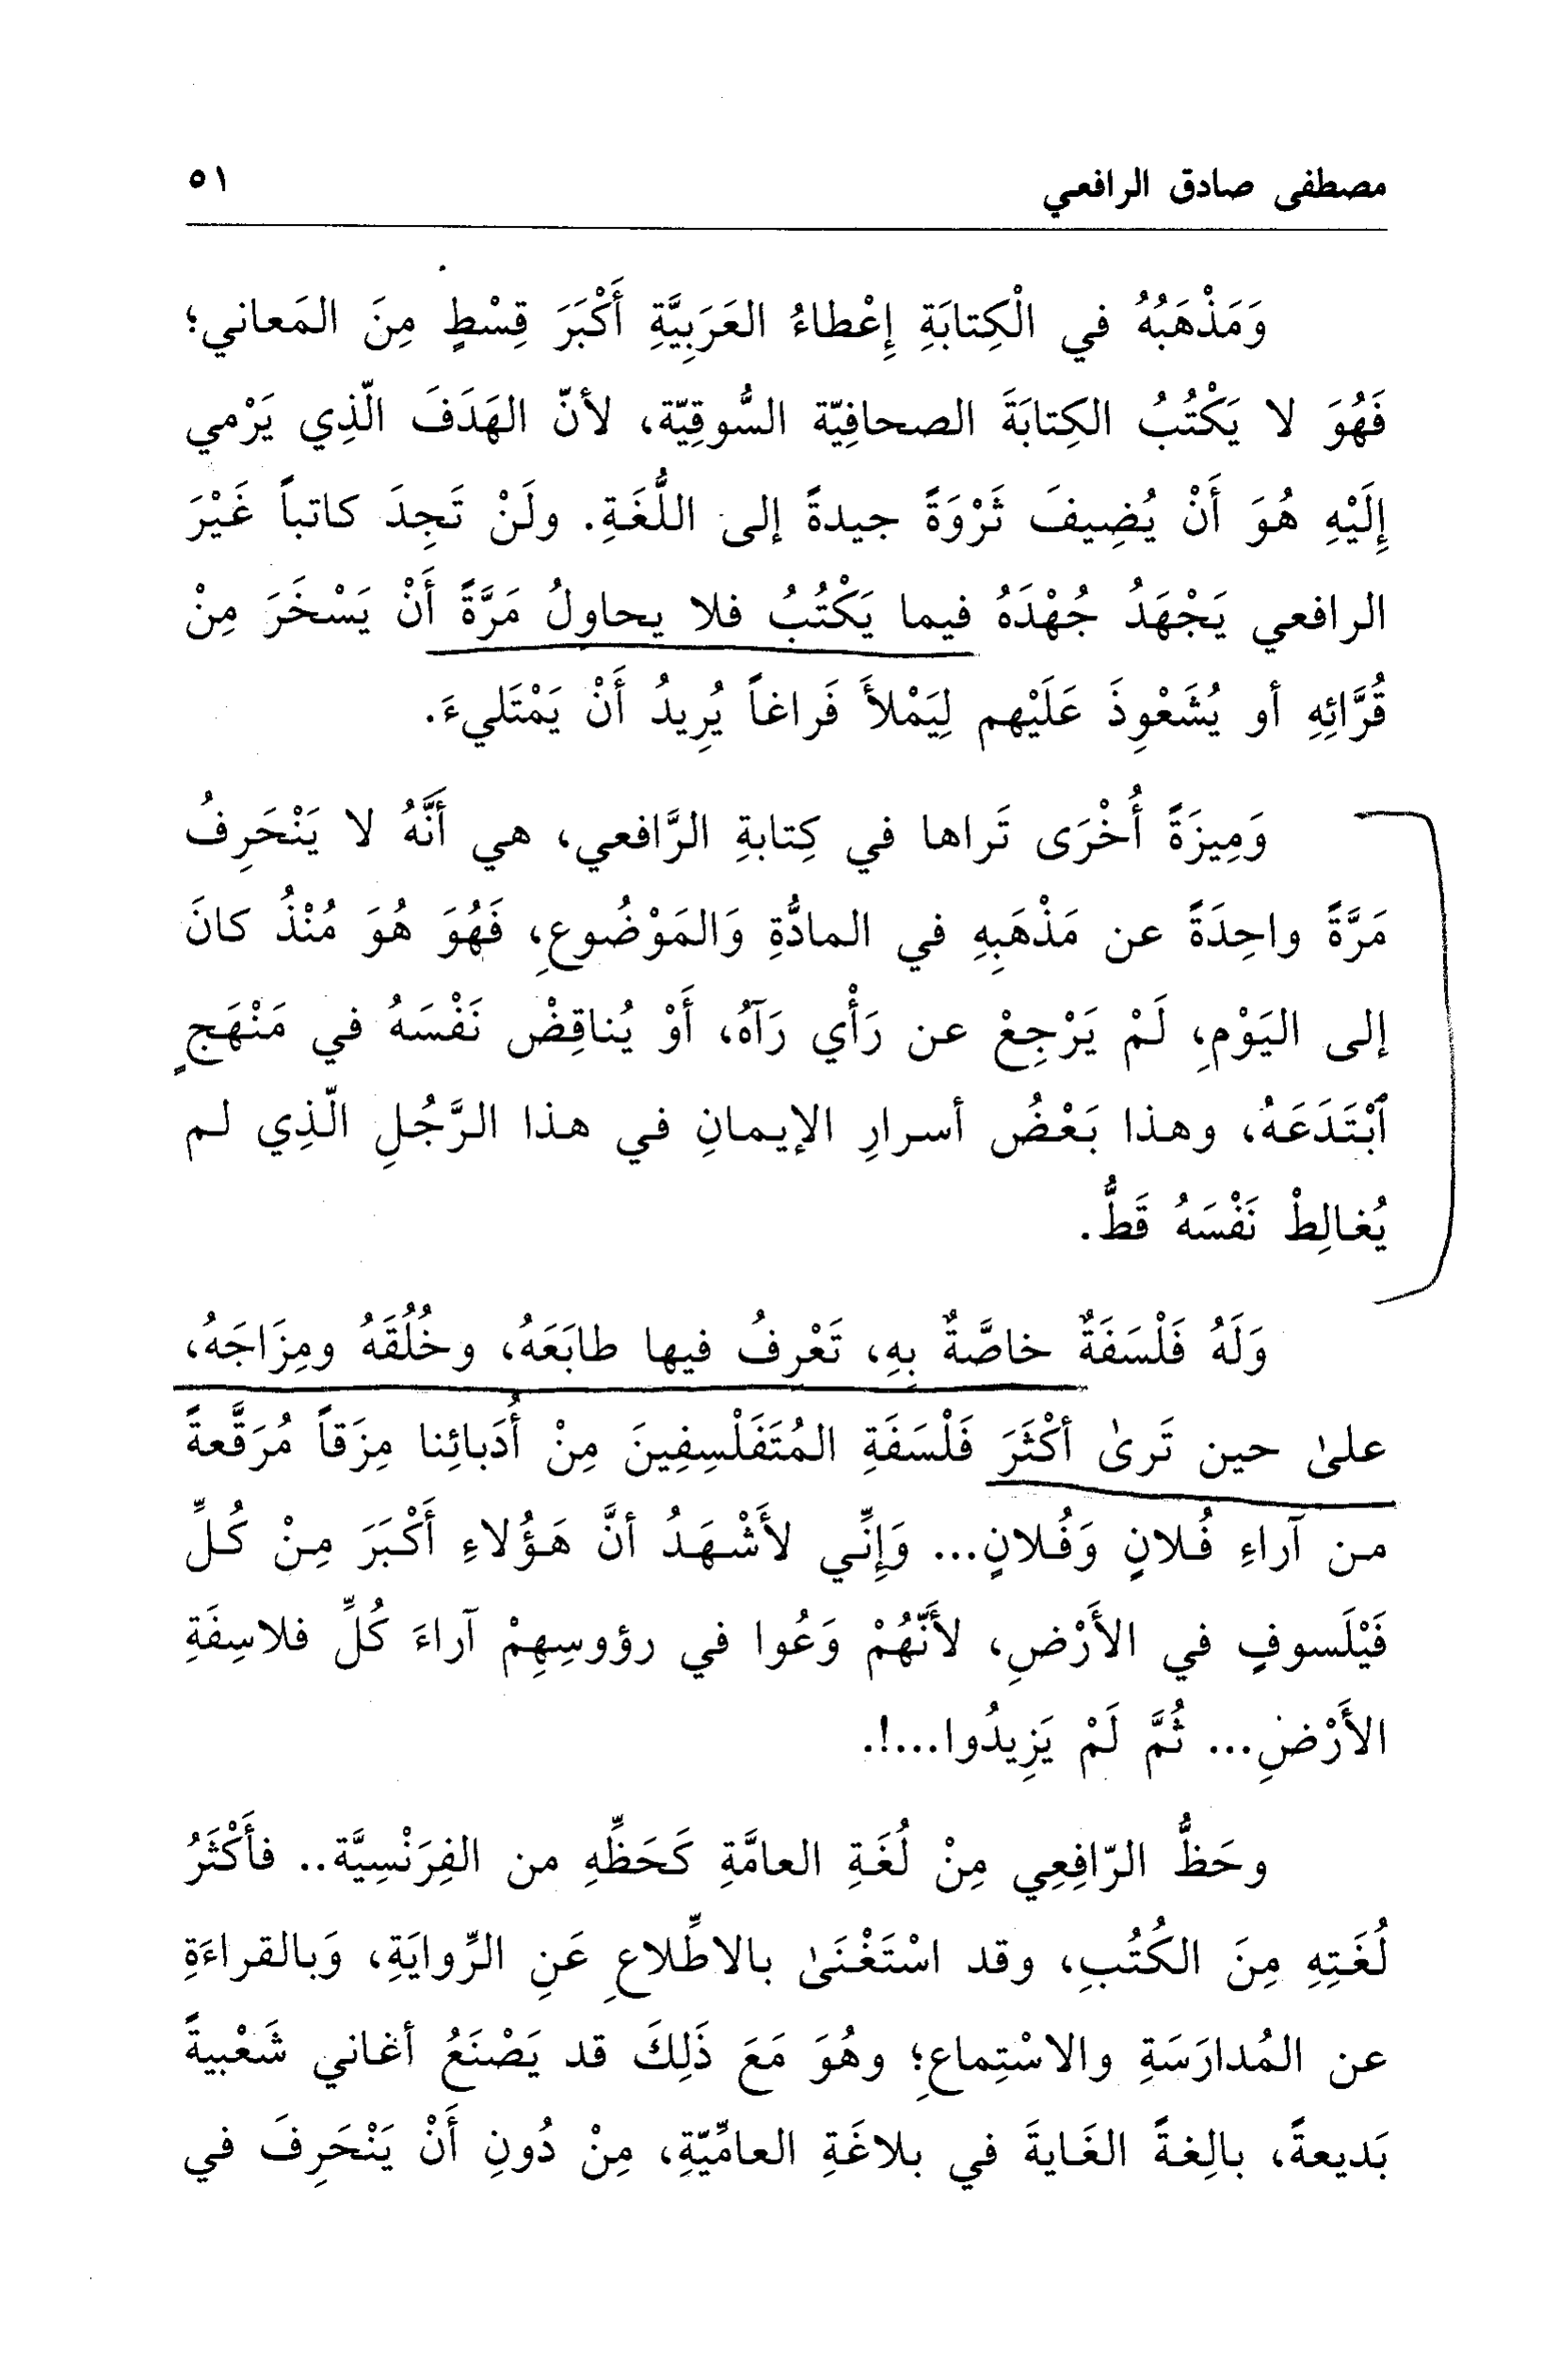 مصطفى صادق الرافعي ٥١
وَمَذْهَبُهُ في الْكِتابَةِ إِعْطاءُ العَرَبِيَّةِ أَكْبَرَ قِسْطٍ مِنَ المَعاني؛
فَهُوَ لا يَكْتُبُ الكِتابَةَ الصحافِيّة السُّوقِيّة، لأنّ الهَدَفَ الّذِي يَرْمي
إِلَيْهِ هُوَ أَنْ يُضِيفَ ثَرْوَةً جيدةً إلى اللُّغَةِ. ولَنْ تَجِدَ كاتباً غَيْرَ
الرافعي يَجْهَدُ جُهْدَهُ فيما يَكْتُبُ فلا يحاولُ مَرَّةً أَنْ يَسْخَرَ مِنْ
قُرَّائِهِ أو يُشَعْوِذَ عَلَيْهم لِيَمْلأَ فَراغاً يُرِيدُ أَنْ يَمْتَليءَ.
وَمِيزَةً أُخْرَى تَراها في كِتابةِ الرَّافعي، هي أَنَّهُ لا يَنْحَرِفُ
مَرَّةً واحِدَةً عن مَذْهَبِهِ في المادُّةِ وَالمَوْضُوعِ، فَهُوَ هُوَ مُنْذُ كانَ
إلى اليَوْمِ، لَمْ يَرْجِعْ عن رَأْي رَآهُ، أَوْ يُناقِضْ نَفْسَهُ في مَنْهَجٍ
ٱبْتَدَعَهُ، وهذا بَعْضُ أسرارِ الإيمانِ في هذا الرَّجُلِ الّذِي لم
يُغالِطْ نَفْسَهُ قَطُّ.
وَلَهُ فَلْسَفَةٌ خاصَّةٌ بِهِ، تَعْرِفُ فيها طابَعَهُ، وخُلُقَهُ ومِزَاجَهُ،
علىٰ حين تَرىٰ أكْثَرَ فَلْسَفَةِ المُتَفَلْسِفِينَ مِنْ أُدَبائِنا مِزَقاً مُرَقَّعةً
من آراءِ فُلانٍ وَفُلانٍ... وَإِنِّي لأَشْهَدُ أنَّ هَؤُلاءِ أَكْبَرَ مِنْ كُلِّ
فَيْلَسوفٍ في الأَرْضِ، لأَنَّهُمْ وَعُوا في رؤوسِهِمْ آراءَ كُلِّ فلاسِفَةِ
الأَرْضِ... ثُمَّ لَمْ يَزِيدُوا...!.
وحَظُّ الرّافِعِي مِنْ لُغَةِ العامَّةِ كَحَظِّهِ من الفِرَنْسِيَّة.. فأَكْثَرُ
لُغَتِهِ مِنَ الكُتُبِ، وقد اسْتَغْنَىٰ بالاطِّلاعِ عَنِ الرِّوايَةِ، وَبالقراءَةِ
عن المُدارَسَةِ والاسْتِماعِ؛ وهُوَ مَعَ ذَلِكَ قد يَصْنَعُ أغاني شَعْبيةً
بَديعةً، بالِغةً الغَايةَ في بلاغَةِ العامِّيّةِ، مِنْ دُونِ أَنْ يَنْحَرِفَ في